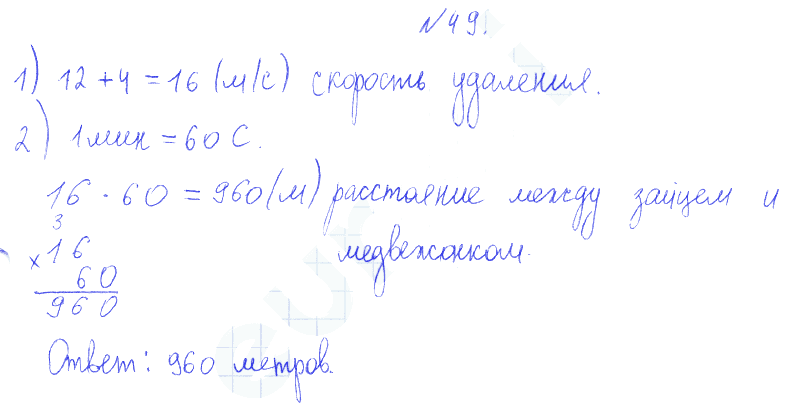 №49.
1) 12 + 4 = 16 (м/с) скорость удаления.
2) 1 мин = 60 С.
16 · 60 = 960 (м) расстояние между зайцем и
медвежонком.
3
× 16
60
960
Ответ: 960 метров.